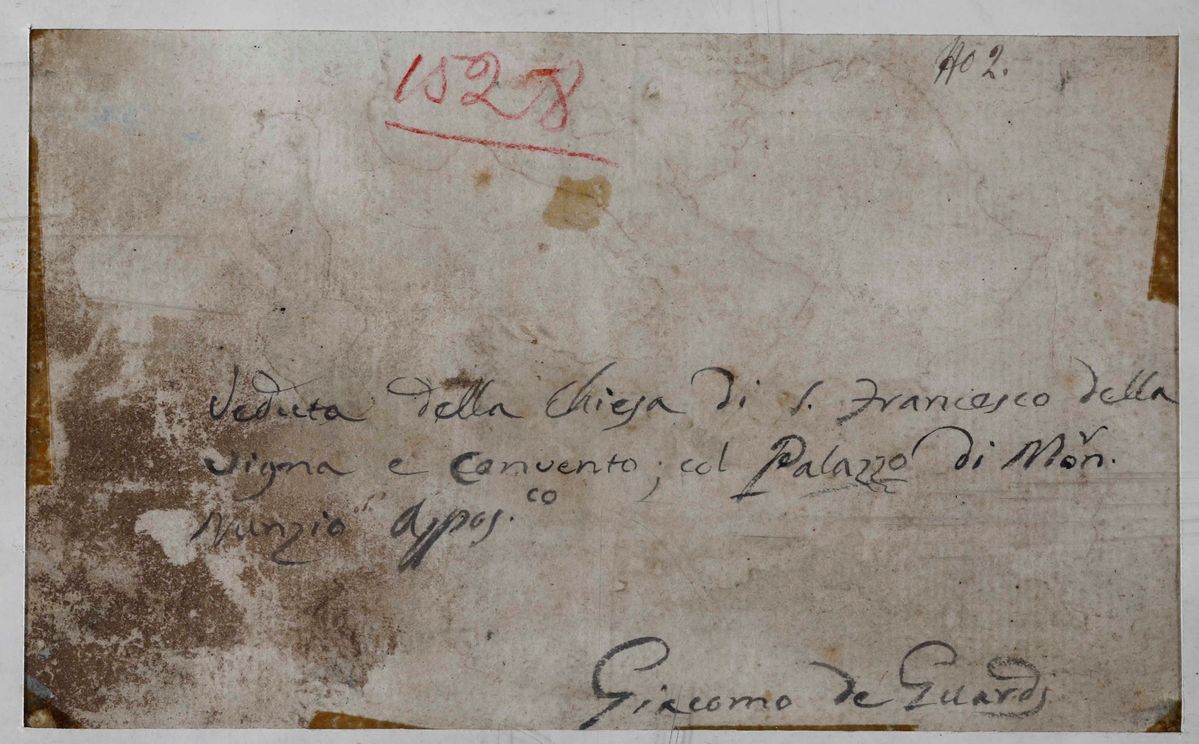 1528
No 2.
Veduta della Chiesa di S. Francesco della
Vigna e Convento; col Palazzo di Mon.r
Nunzio Appos.co
Giacomo de Guardi